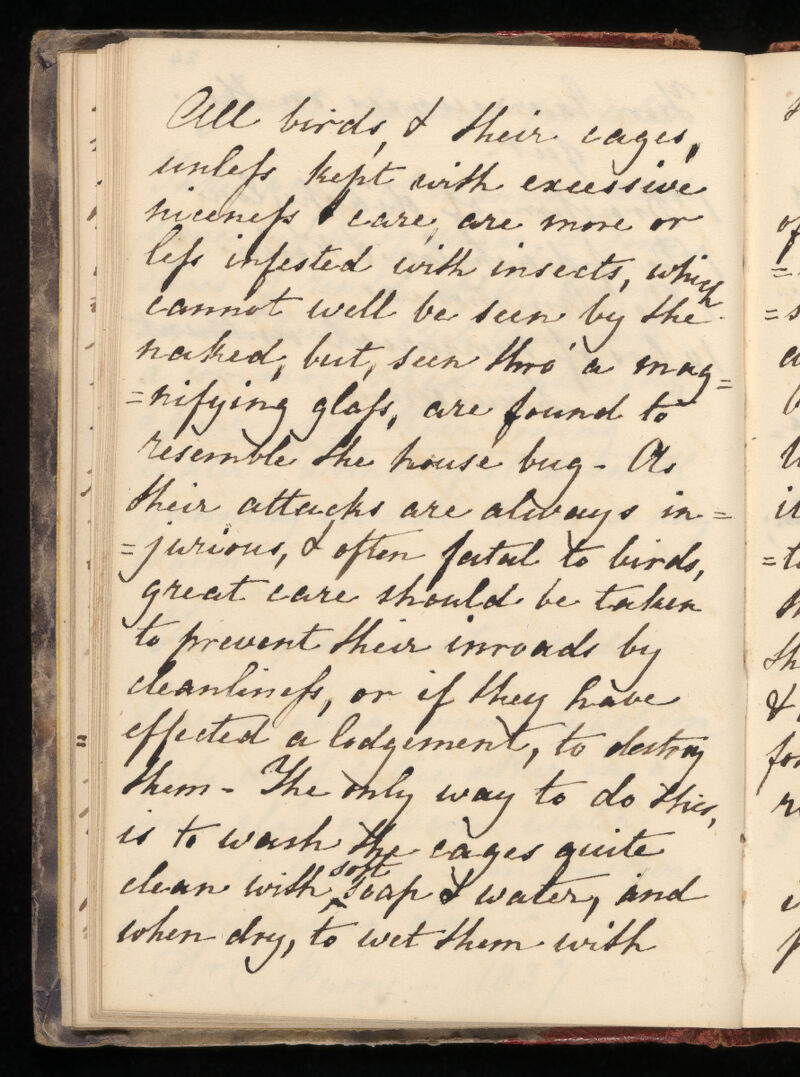 All birds, & their cages,
unleſs kept with excessive
niceneſs & care, are more or
leſs infested with insects, which
cannot well be seen by the
naked, but, seen thro' a mag=
=nifying glaſs, are found to
resemble the house bug - As
their attacks are always in=
=jurious, & often fatal to birds,
great care should be taken
to prevent their inroads by
cleanlineſs, or if they have
effected a lodgement, to destroy
them - The only way to do this,
is to wash the cages quite
soft
clean with ^ soap & water, and
when dry, to wet them with